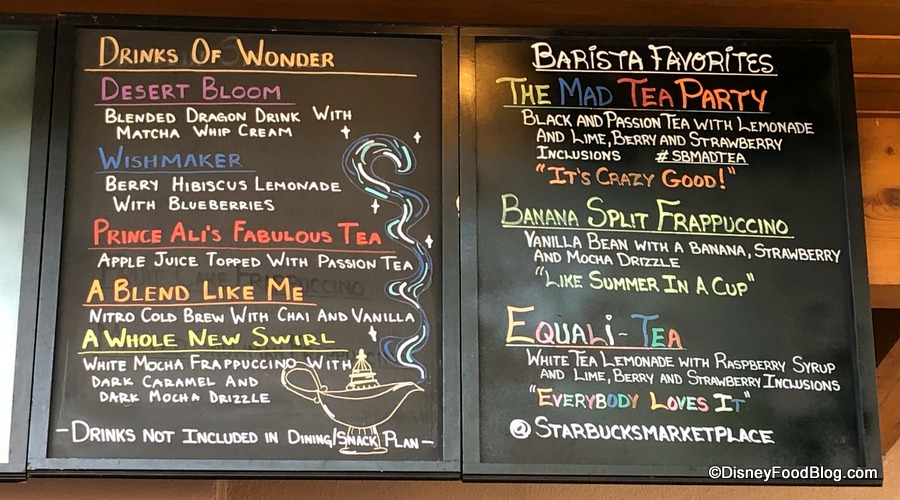 Drinks Of Wonder
Desert Bloom
Blended Dragon Drink With
Matcha Whip Cream
Wishmaker
Berry Hibiscus Lemonade
With Blueberries
Prince Ali's Fabulous Tea
Apple Juice Topped With Passion Tea
A Blend Like Me
Nitro Cold Brew With Chai And Vanilla
A Whole New Swirl
White Mocha Frappuccino With
Dark Caramel And
Dark Mocha Drizzle
- Drinks Not Included in Dining/Snack Plan -
Barista Favorites
The Mad Tea Party
Black and Passion Tea with Lemonade
and Lime, Berry and Strawberry
Inclusions #SBMADTEA
"It's Crazy Good!"
Banana Split Frappuccino
Vanilla Bean with a Banana, Strawberry
and Mocha Drizzle
"Like Summer In A Cup"
Equali-Tea
White Tea Lemonade with Raspberry Syrup
and Lime, Berry and Strawberry Inclusions
"Everybody Loves It"
@ Starbucksmarketplace
©DisneyFoodBlog.com